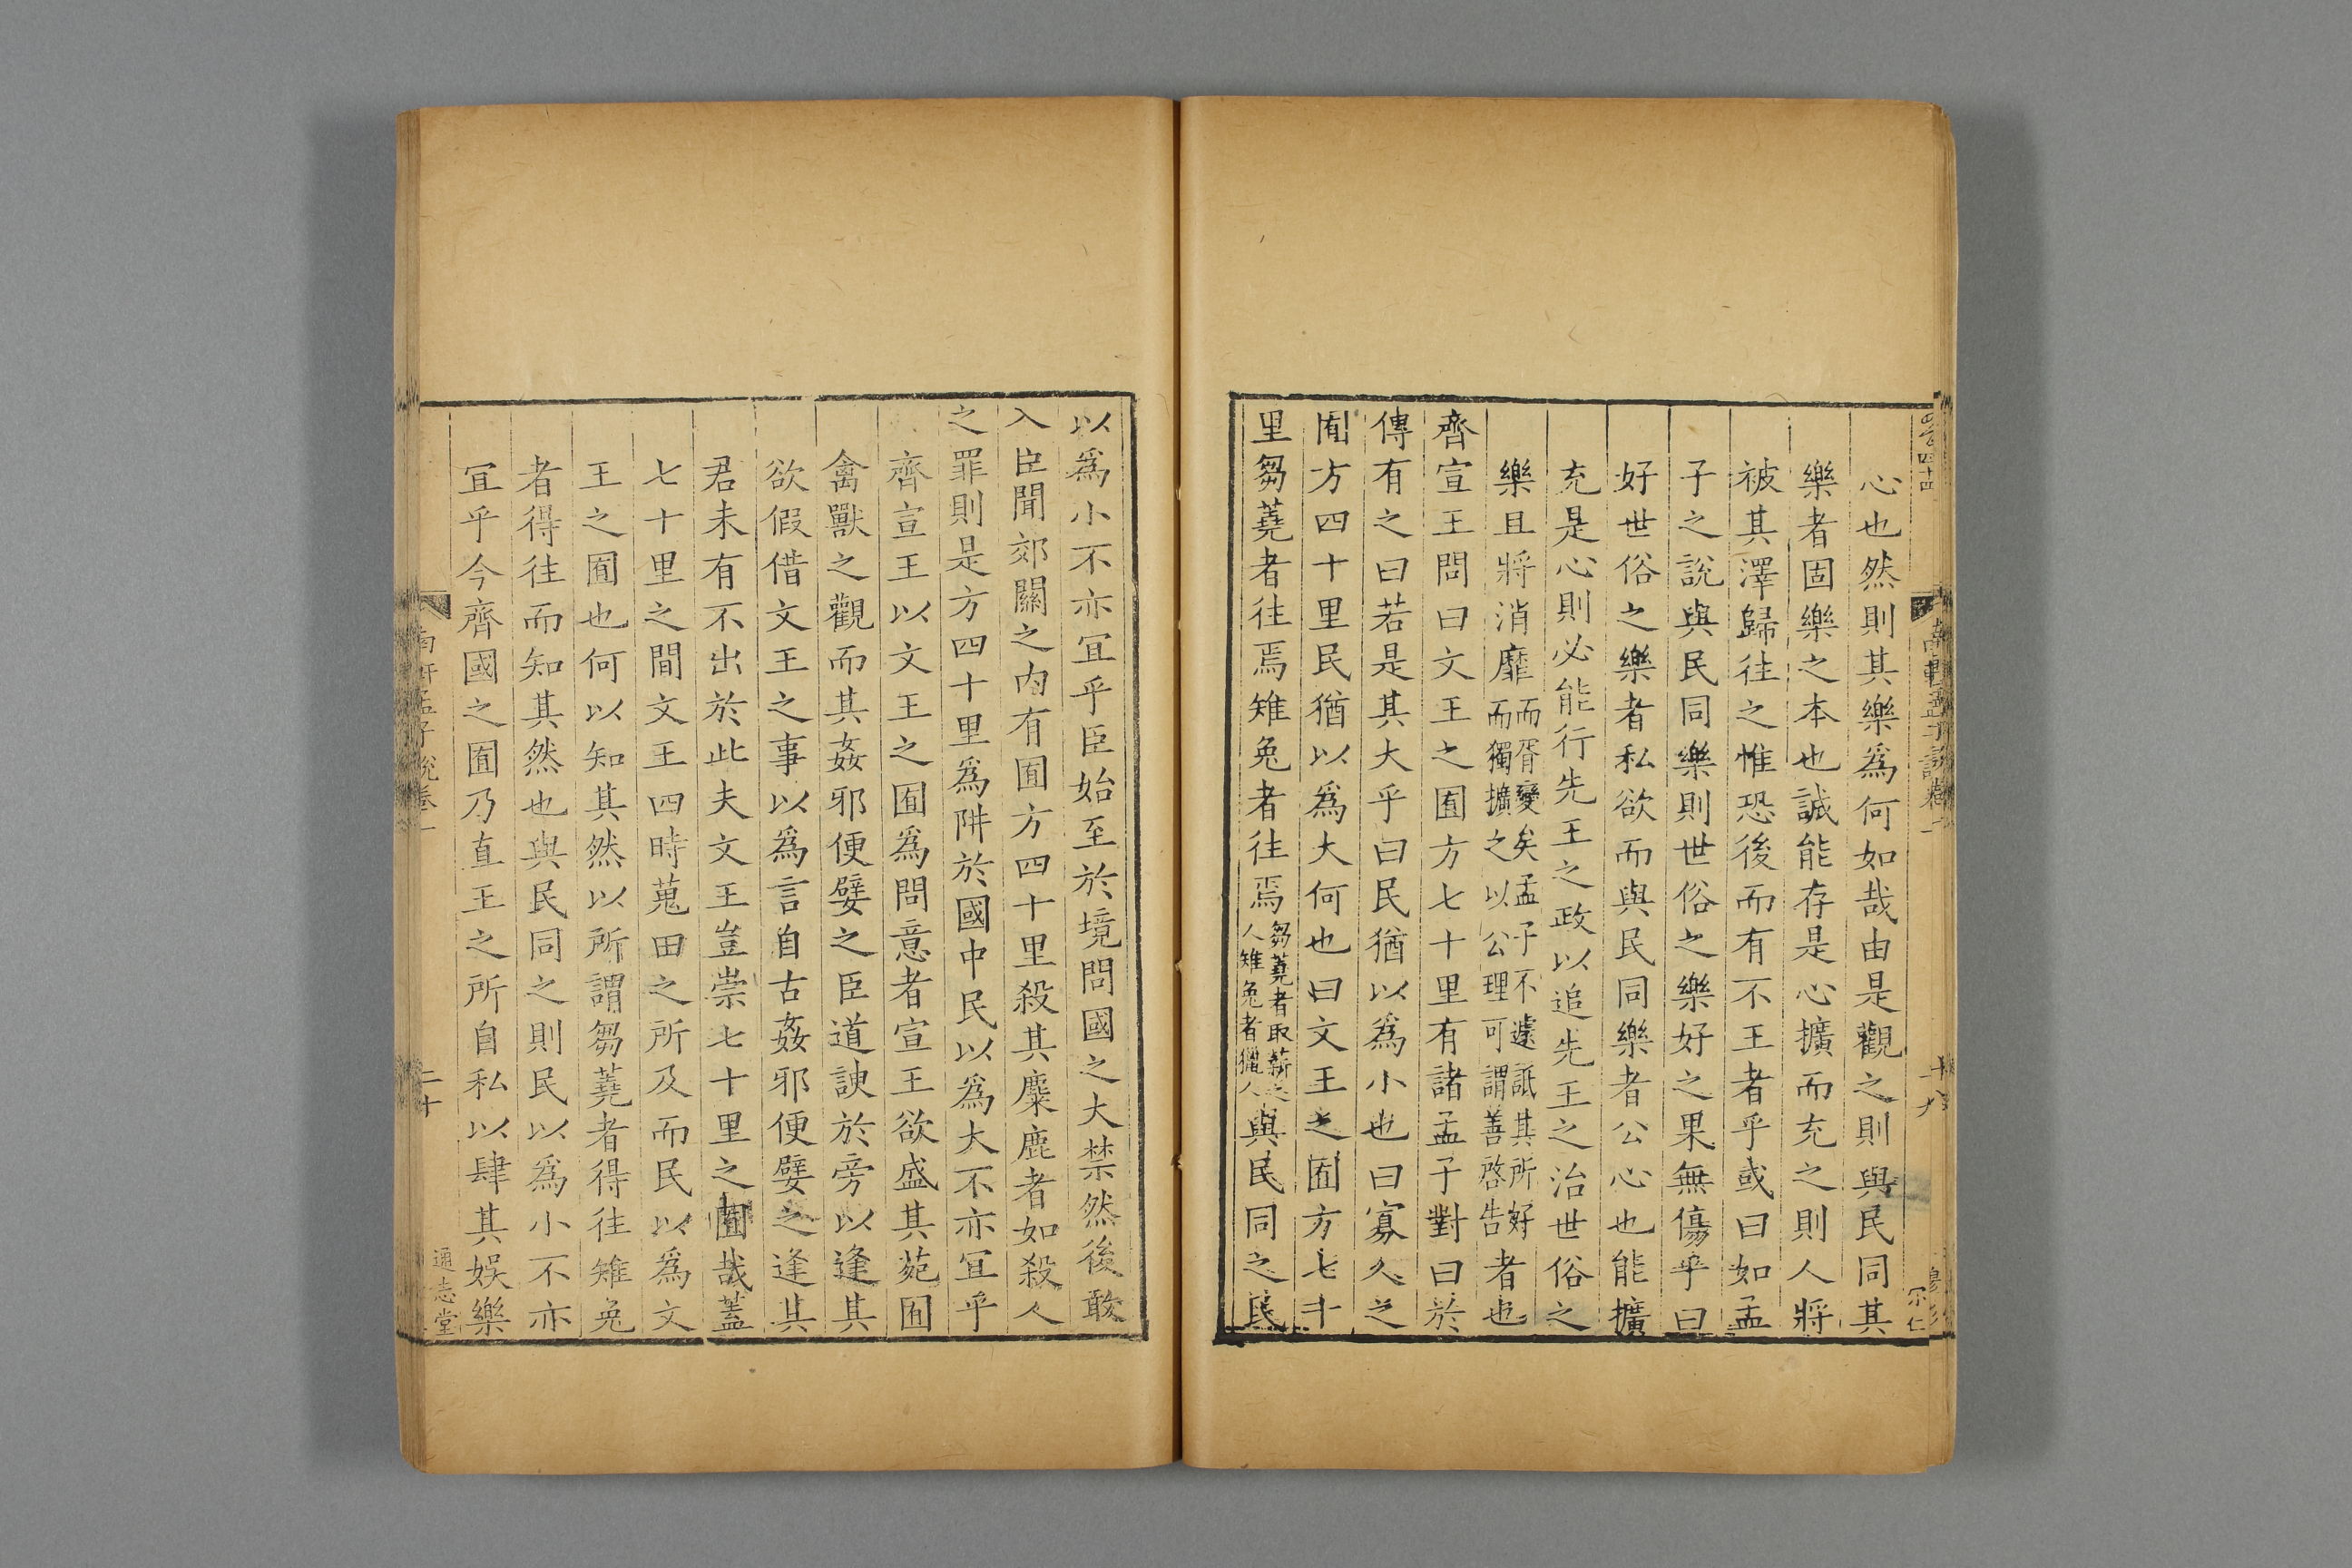 心也然則其樂爲何如哉由是觀之則與民同其
樂者固樂之本也誠能存是心擴而充之則人將
被其澤歸往之惟恐後而有不王者乎或曰如孟
子之說與民同樂則世俗之樂好之果無傷乎曰
好世俗之樂者私欲而與民同樂者公心也能擴
充是心則必能行先王之政以追先王之治世俗之
樂且將消靡而胥變矣孟子不遽詆其所好而獨擴之以公理可謂善啓告者也
齊宣王問曰文王之囿方七十里有諸孟子對曰於
傳有之曰若是其大乎曰民猶以爲小也曰寡人之
囿方四十里民猶以爲大何也曰文王之囿方七十
里芻蕘者往焉雉兔者往焉芻蕘者取薪之人雉兔者獵人與民同之民
以爲小不亦宜乎臣始至於境問國之大禁然後敢
入臣聞郊關之內有囿方四十里殺其麋鹿者如殺人
之罪則是方四十里爲阱於國中民以爲大不亦宜乎
齊宣王以文王之囿爲問意者宣王欲盛其苑囿
禽獸之觀而其姦邪便嬖之臣道諛於旁以逢其
欲假借文王之事以爲言自古姦邪便嬖之逢其
君未有不出於此夫文王豈崇七十里之囿哉蓋
七十里之間文王四時蒐田之所及而民以爲文
王之囿也何以知其然以所謂芻蕘者得往雉兔
者得往而知其然也與民同之則民以爲小不亦
宜乎今齊國之囿乃直王之所自私以肆其娛樂
南軒孟子說卷一
二十
通志堂